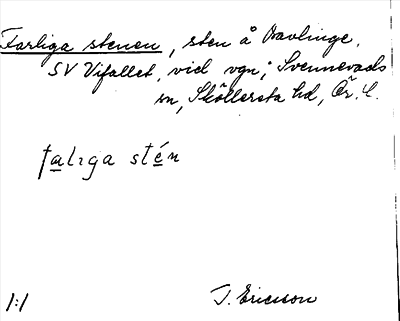 Farliga stenen, sten å Bavlinge.
SV Vifallet, vid vgn; Svennevads
sn, Sköllersta hd, Ör. l.
fa̲lıga sté̲n
1:1
J. Ericsson